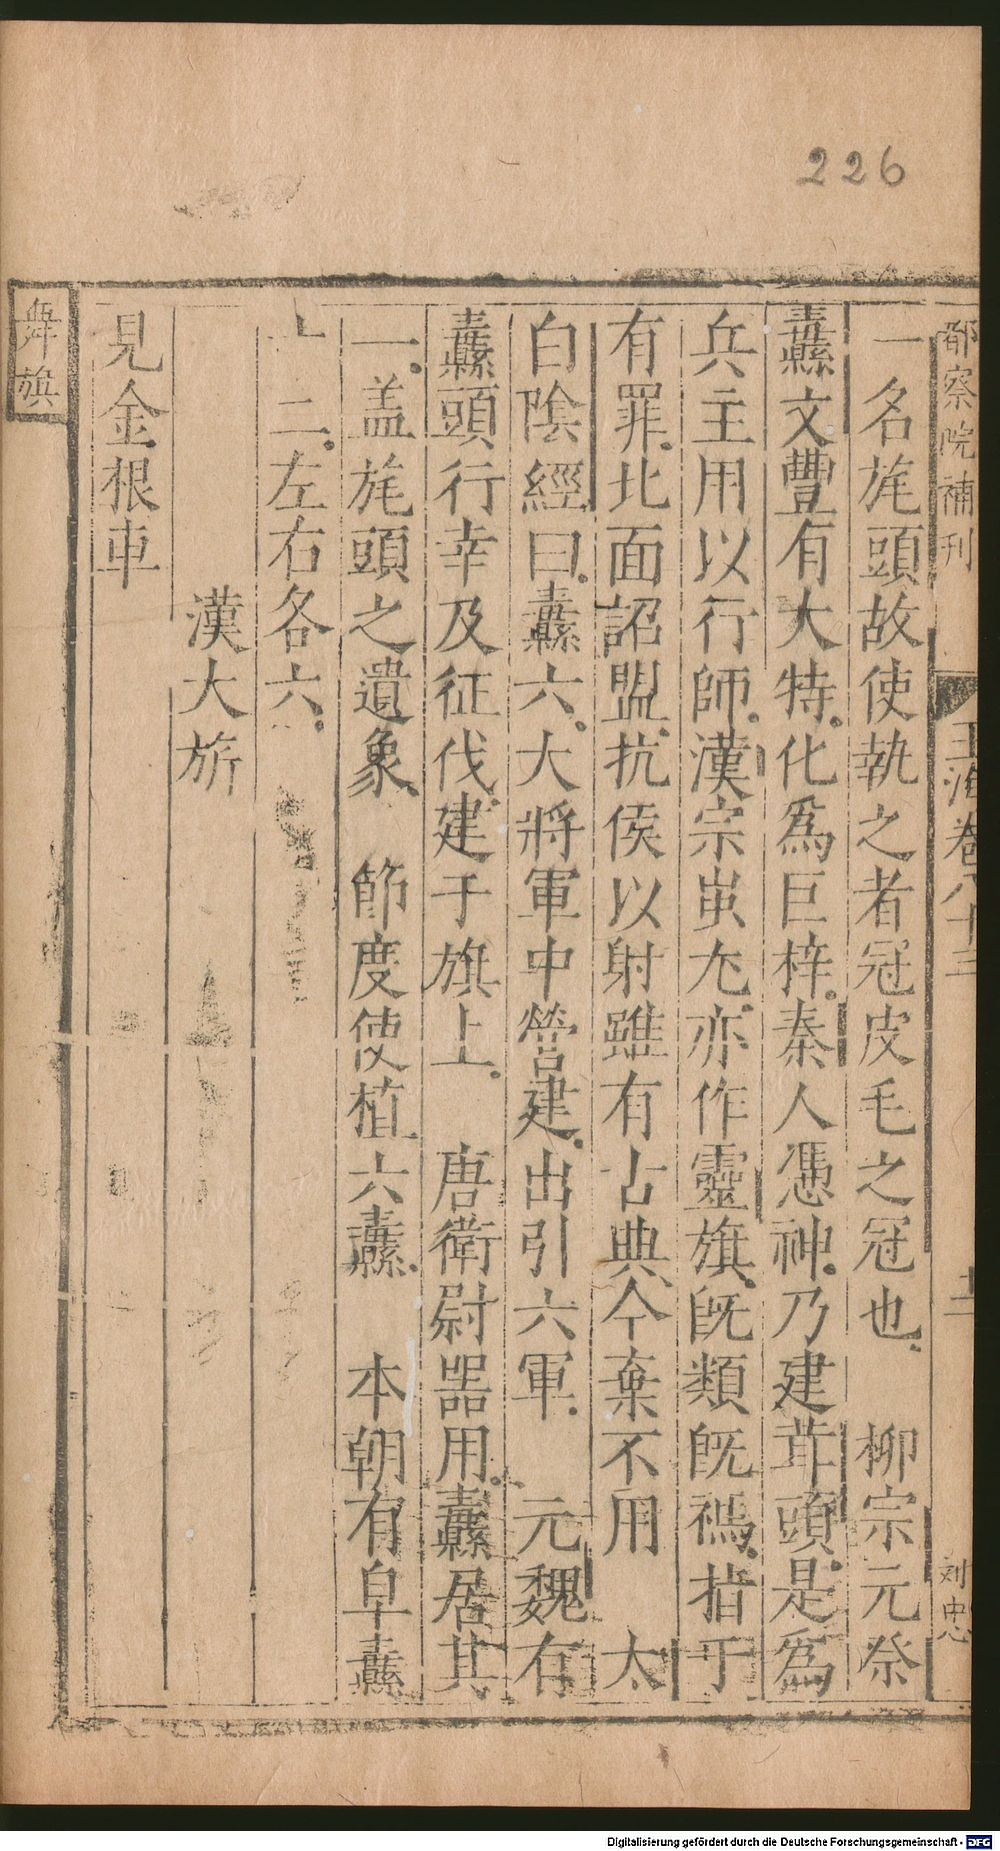 226
都察院補刊
玉海卷八十三
十二
刘忠
一名旄頭故使執之者冠皮毛之冠也 柳宗元祭
纛文豐有大特化爲巨梓秦人憑神乃建茸頭是爲
兵主用以行師漢宗蚩尤亦作靈旗旣類旣禡指于
有罪北面詔盟抗侯以射雖有古典今棄不用 太
白陰經曰纛六大將軍中營建出引六軍 元魏有
纛頭行幸及征伐建于旗上 唐衛尉器用纛居其
一盖旄頭之遺象 節度使植六纛 本朝有皁纛
十二左右各六
漢大旂
見金根車
舞旗
Digitalisierung gefördert durch die Deutsche Forschungsgemeinschaft - DFG